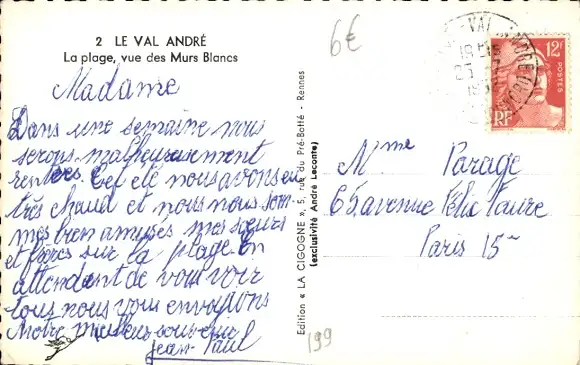 2 LE VAL ANDRÉ
La plage, vue des Murs Blancs
6€
Madame
Dans une semaine nous
serons malheureusement
rentrées. Cet été nous avons eu
très chaud et nous nous som-
mes bien amusés mes sœurs
et frères sur la plage. En
attendant de vous voir
tous nous vous envoyons
Notre meilleur souvenir
Jean-Paul
Edition « LA CIGOGNE », 5, rue du Pré-Botté - Rennes
(exclusivité André Leconte)
12F
POSTES
RF
VAL ANDRÉ
Mme Parage
65 avenue Félix Faure
Paris 15
199